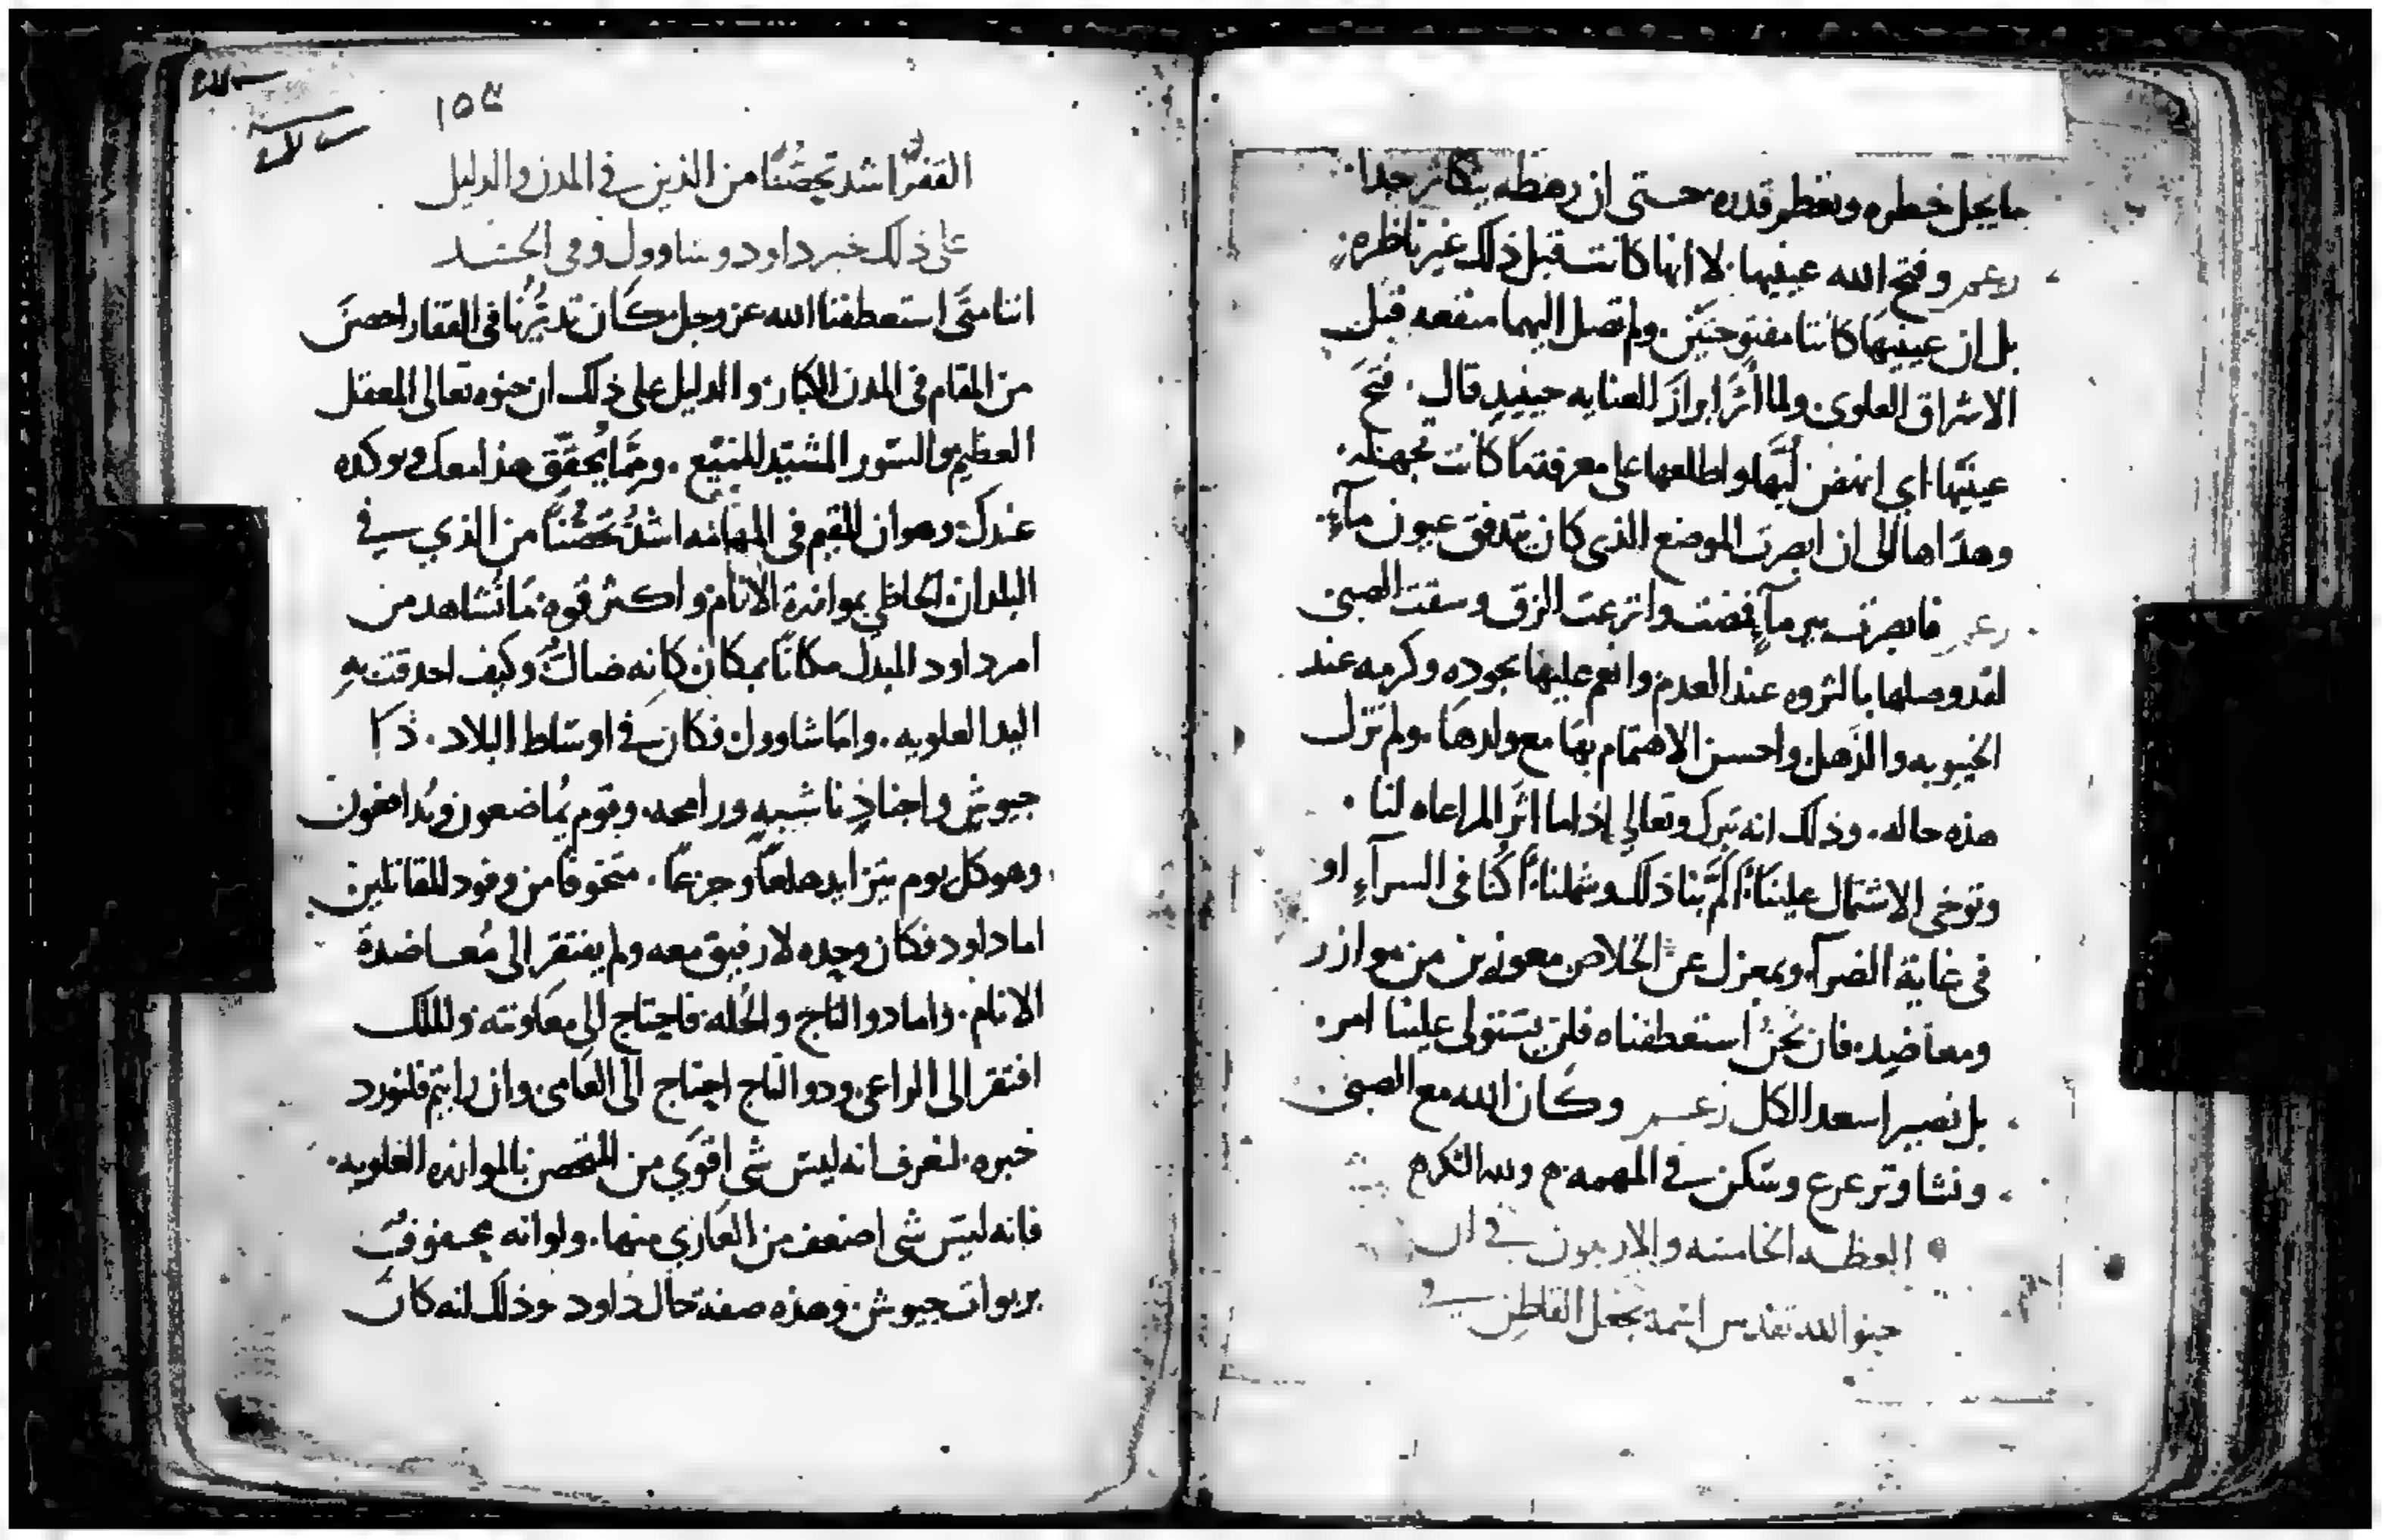 ما يجل خطره ويعظم قدره حتى ان رهطه يتكاثر جدا
زعم وفتح الله عينيها. لا انها كانت قبل ذلك غير ناظره
بل ان عينيها كانتا مفتوحتين. ولم تصل اليهما منفعه قبل
الاشراق العلوى. ولما اثر ابراز العنايه حينيد قال. فتح
عينيها. اي انهض لبها واطلعها على معرفة ما كانت تجهله
وهداها الى ان ابصرت الموضع الذى كان تتدفق عيون مآءٍ
زعم فابصرت بير مآءٍ فمضت واترعت الزق وسقت الصبى
لقد وصلها بالثروه عند العدم وانعم عليها بجوده وكرمه عند
الخيبوبه والذهل. واحسن الاهتمام بها مع ولدها. ولم تزل
هذه حاله. وذلك انه تبرك وتعالى اذا ما اثر المراعاه لنا.
وتوخى الاشتمال علينا. الم بنا ذلك وشملنا. أكنا فى السرآءِ او
فى غاية الضرآء. وبمعزل عن الخلاص معوزين من موازر
ومعاضد. فان نحن استعطفناه فلن يستولى علينا امر.
بل نصير اسعد الكل زعم وكان الله مع الصبى
ونشا وترعرع وسكن في المهمه م
العظه الخامسه والاربعون في ان
حنو الله تقدس اسمه يجعل القاطن في
١٥٤
القفر اشد تحصّنًا من الذين في المدن والدليل
على ذلك خبر داود وشاوول وفى الحسد
اننا متى استعطفنا الله عز وجل كان تديُّرنا فى القفار احصن
من المقام فى المدن الكبار. والدليل على ذلك ان حنوه تعالى المعقل
العظيم والسور المشيد المنيع. ومما يحقق هذا معك ويوكده
عندك. وهو ان المقيم فى المهامه اشدُّ تحصّنًا من الذي في
البلدان الحاظي بموازرة الانام واكثر قوه. ما تشاهد من
امر داود المبدل مكانًا بمكان كانه ضالٌ وكيف احدقت بهِ
اليد العلويه. واما شاوول فكان في اوساط البلاد. ذا
جيوش واجنادٍ ناشبيهٍ ورامحه. وقوم يُماضعون ويُدافعون
وهو كل يوم يتزايد هلعًا وجزعًا. متخوفًا من وفود المقاتلين
اما داود فكان وحده لا رفيق معه ولم يفتقر الى مُعاضدة
الانام. واما دوا التاج والحُله فاحتاج الى معاونته والملك
افتقر الى الراعى. ودو التاج احتاج الى العامى وان رايتم فلنورد
خبره. لنعرف انه ليس شى اقوي من المحصن بالموازره العلويه.
فانه ليس شى اضعف من العاري منها. ولو انه محفوفٌ
بربوات جيوش. وهذه صفة حال داود وذلك انه كان